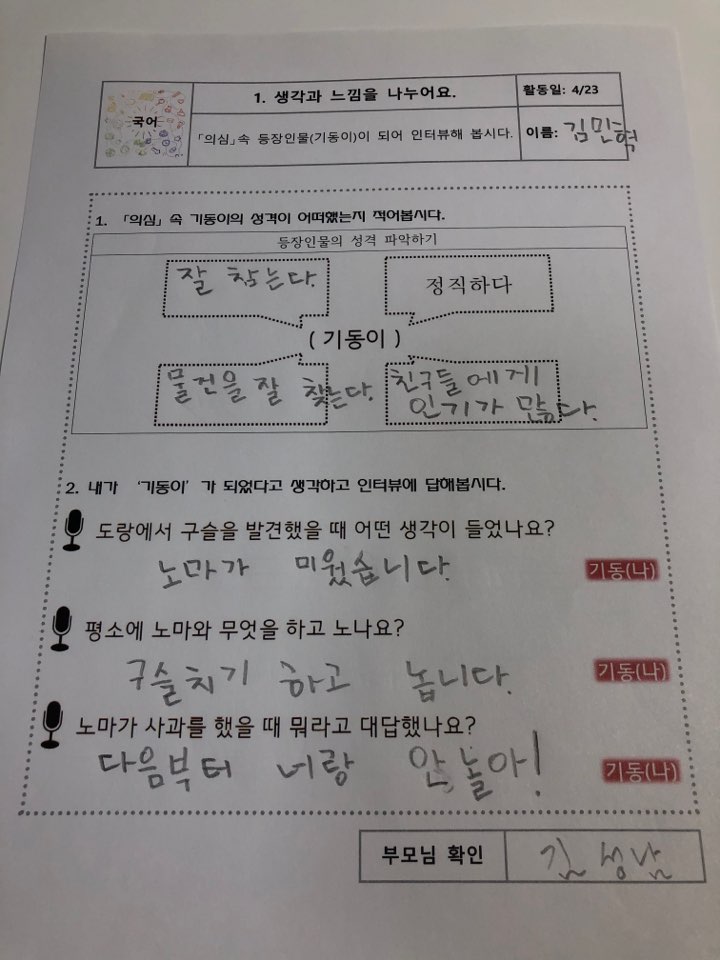 국어
1. 생각과 느낌을 나누어요.
활동일: 4/23
「의심」속 등장인물(기동이)이 되어 인터뷰해 봅시다.
이름: 김민혁
1. 「의심」 속 기동이의 성격이 어떠했는지 적어봅시다.
등장인물의 성격 파악하기
잘 참는다.
정직하다
( 기동이 )
물건을 잘 찾는다.
친구들에게
인기가 많다.
2. 내가 ‘기동이’가 되었다고 생각하고 인터뷰에 답해봅시다.
도랑에서 구슬을 발견했을 때 어떤 생각이 들었나요?
노마가 미웠습니다.
기동(나)
평소에 노마와 무엇을 하고 노나요?
구슬치기 하고 놉니다.
기동(나)
노마가 사과를 했을 때 뭐라고 대답했나요?
다음부터 너랑 안 놀아!
기동(나)
부모님 확인
김성남